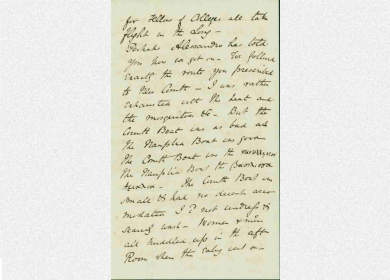 for Fellows of College all take
flight in the Long -
Perhaps Alessandro has told
you how we got on - We followed
exactly the route you prescribed
to the Corinth - I was rather
exhausted with the heat and
the mosquitoes &c - But the
Corinth Boat was as bad as
the Nauplia Boat was good
The Corinth Boat was the
The Nauplia Boat the
The Corinth Boat was
small & had no decent acco-
modation I c^d not undress &
scarcely wash - Women & men
all huddled up in the aft
Room when the went on -